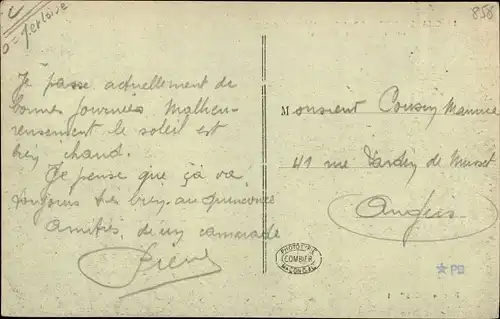 Je passe actuellement de
bonnes journées. Malheu-
reusement le soleil est
bien chaud.
Je pense que ça va
toujours très bien au quinconce
Amitiés de un camarade
Pierre
Monsieur Cousin Maurice
41 rue Jardin de Musset
Angers
PHOTOTYPIE
COMBIER
MACON (S&L)
PB
858